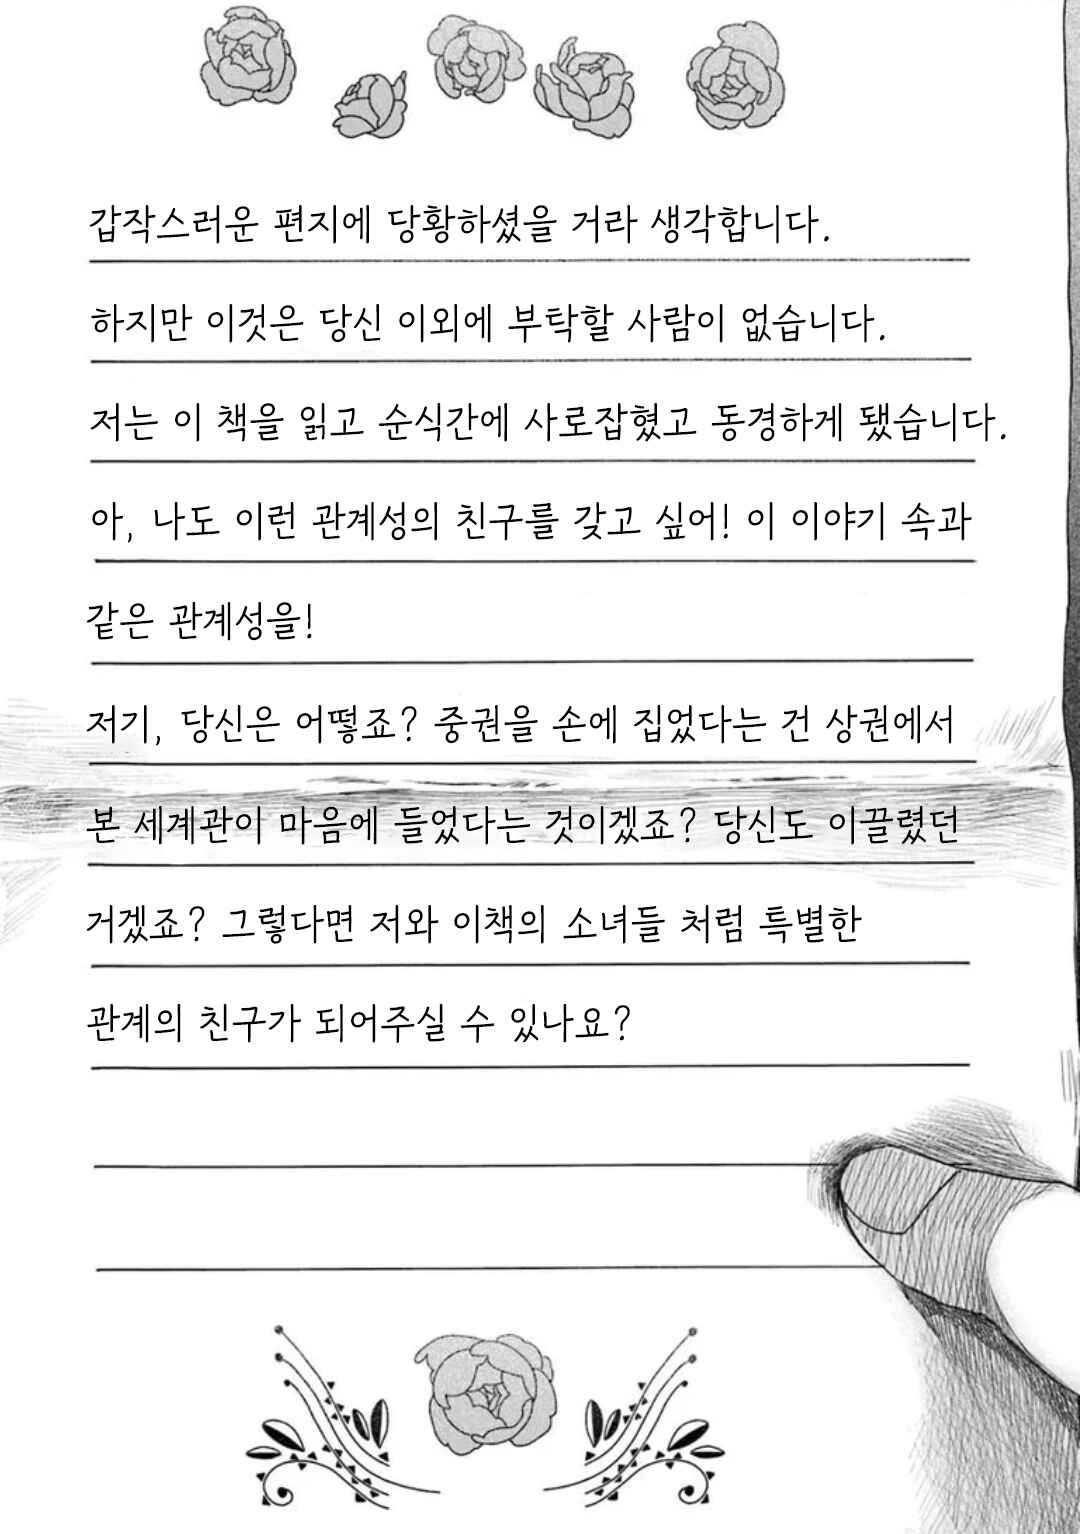 갑작스러운 편지에 당황하셨을 거라 생각합니다.
하지만 이것은 당신 이외에 부탁할 사람이 없습니다.
저는 이 책을 읽고 순식간에 사로잡혔고 동경하게 됐습니다.
아, 나도 이런 관계성의 친구를 갖고 싶어! 이 이야기 속과
같은 관계성을!
저기, 당신은 어떻죠? 중권을 손에 집었다는 건 상권에서
본 세계관이 마음에 들었다는 것이겠죠? 당신도 이끌렸던
거겠죠? 그렇다면 저와 이책의 소녀들 처럼 특별한
관계의 친구가 되어주실 수 있나요?